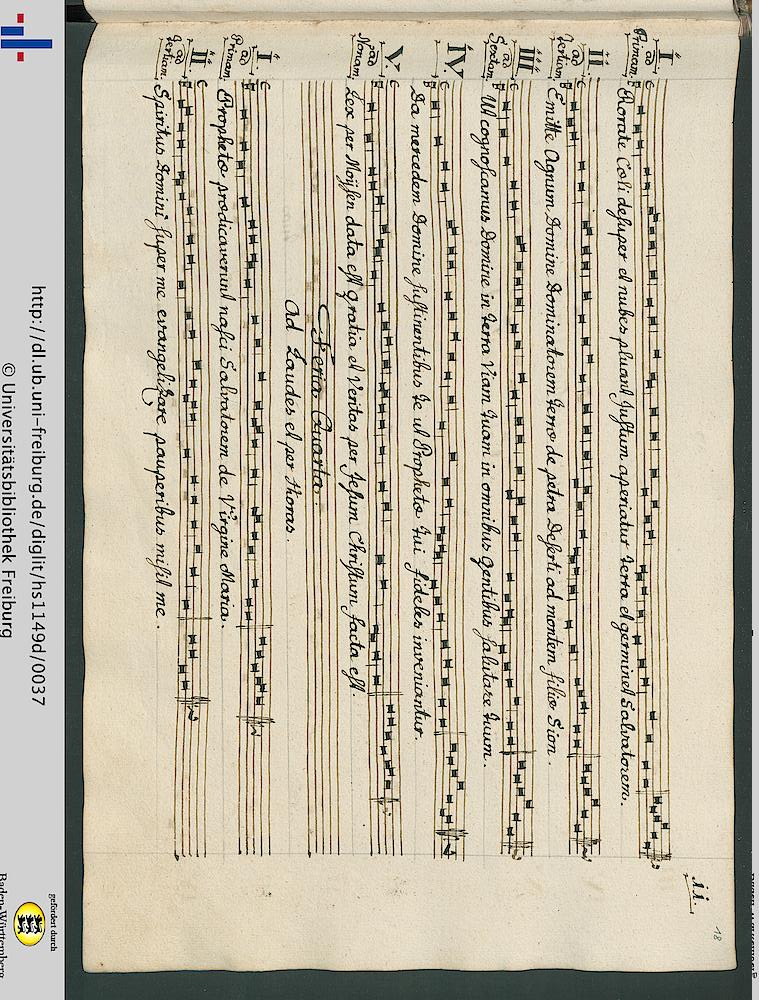 ii.
18
I. ad Primam. Rorate Cœli desuper et nubes pluant Justum aperiatur terra et germinet Salvatorem.
II. ad tertiam. Emitte Agnum Domine Dominatorem terræ de petra Deserti ad montem filiæ Sion.
III. ad Sextam. Ut cognoscamus Domine in terra Viam tuam in omnibus Gentibus salutare tuum.
IV. Da mercedem Domine sustinentibus te ut Prophetæ tui fideles inveniantur.
V. ad Nonam. Lex per Moijsen data est gratia et Veritas per Jesum Christum facta est.
Feria Quarta.
Ad Laudes et per Horas.
I. ad Primam. Prophetæ prædicaverunt nasci Salvatorem de Virgine Maria.
II. ad tertiam. Spiritus Domini super me evangelizare pauperibus misit me.
http://dl.ub.uni-freiburg.de/diglit/hs1149d/0037
© Universitätsbibliothek Freiburg
gefördert durch
Baden-Württemberg